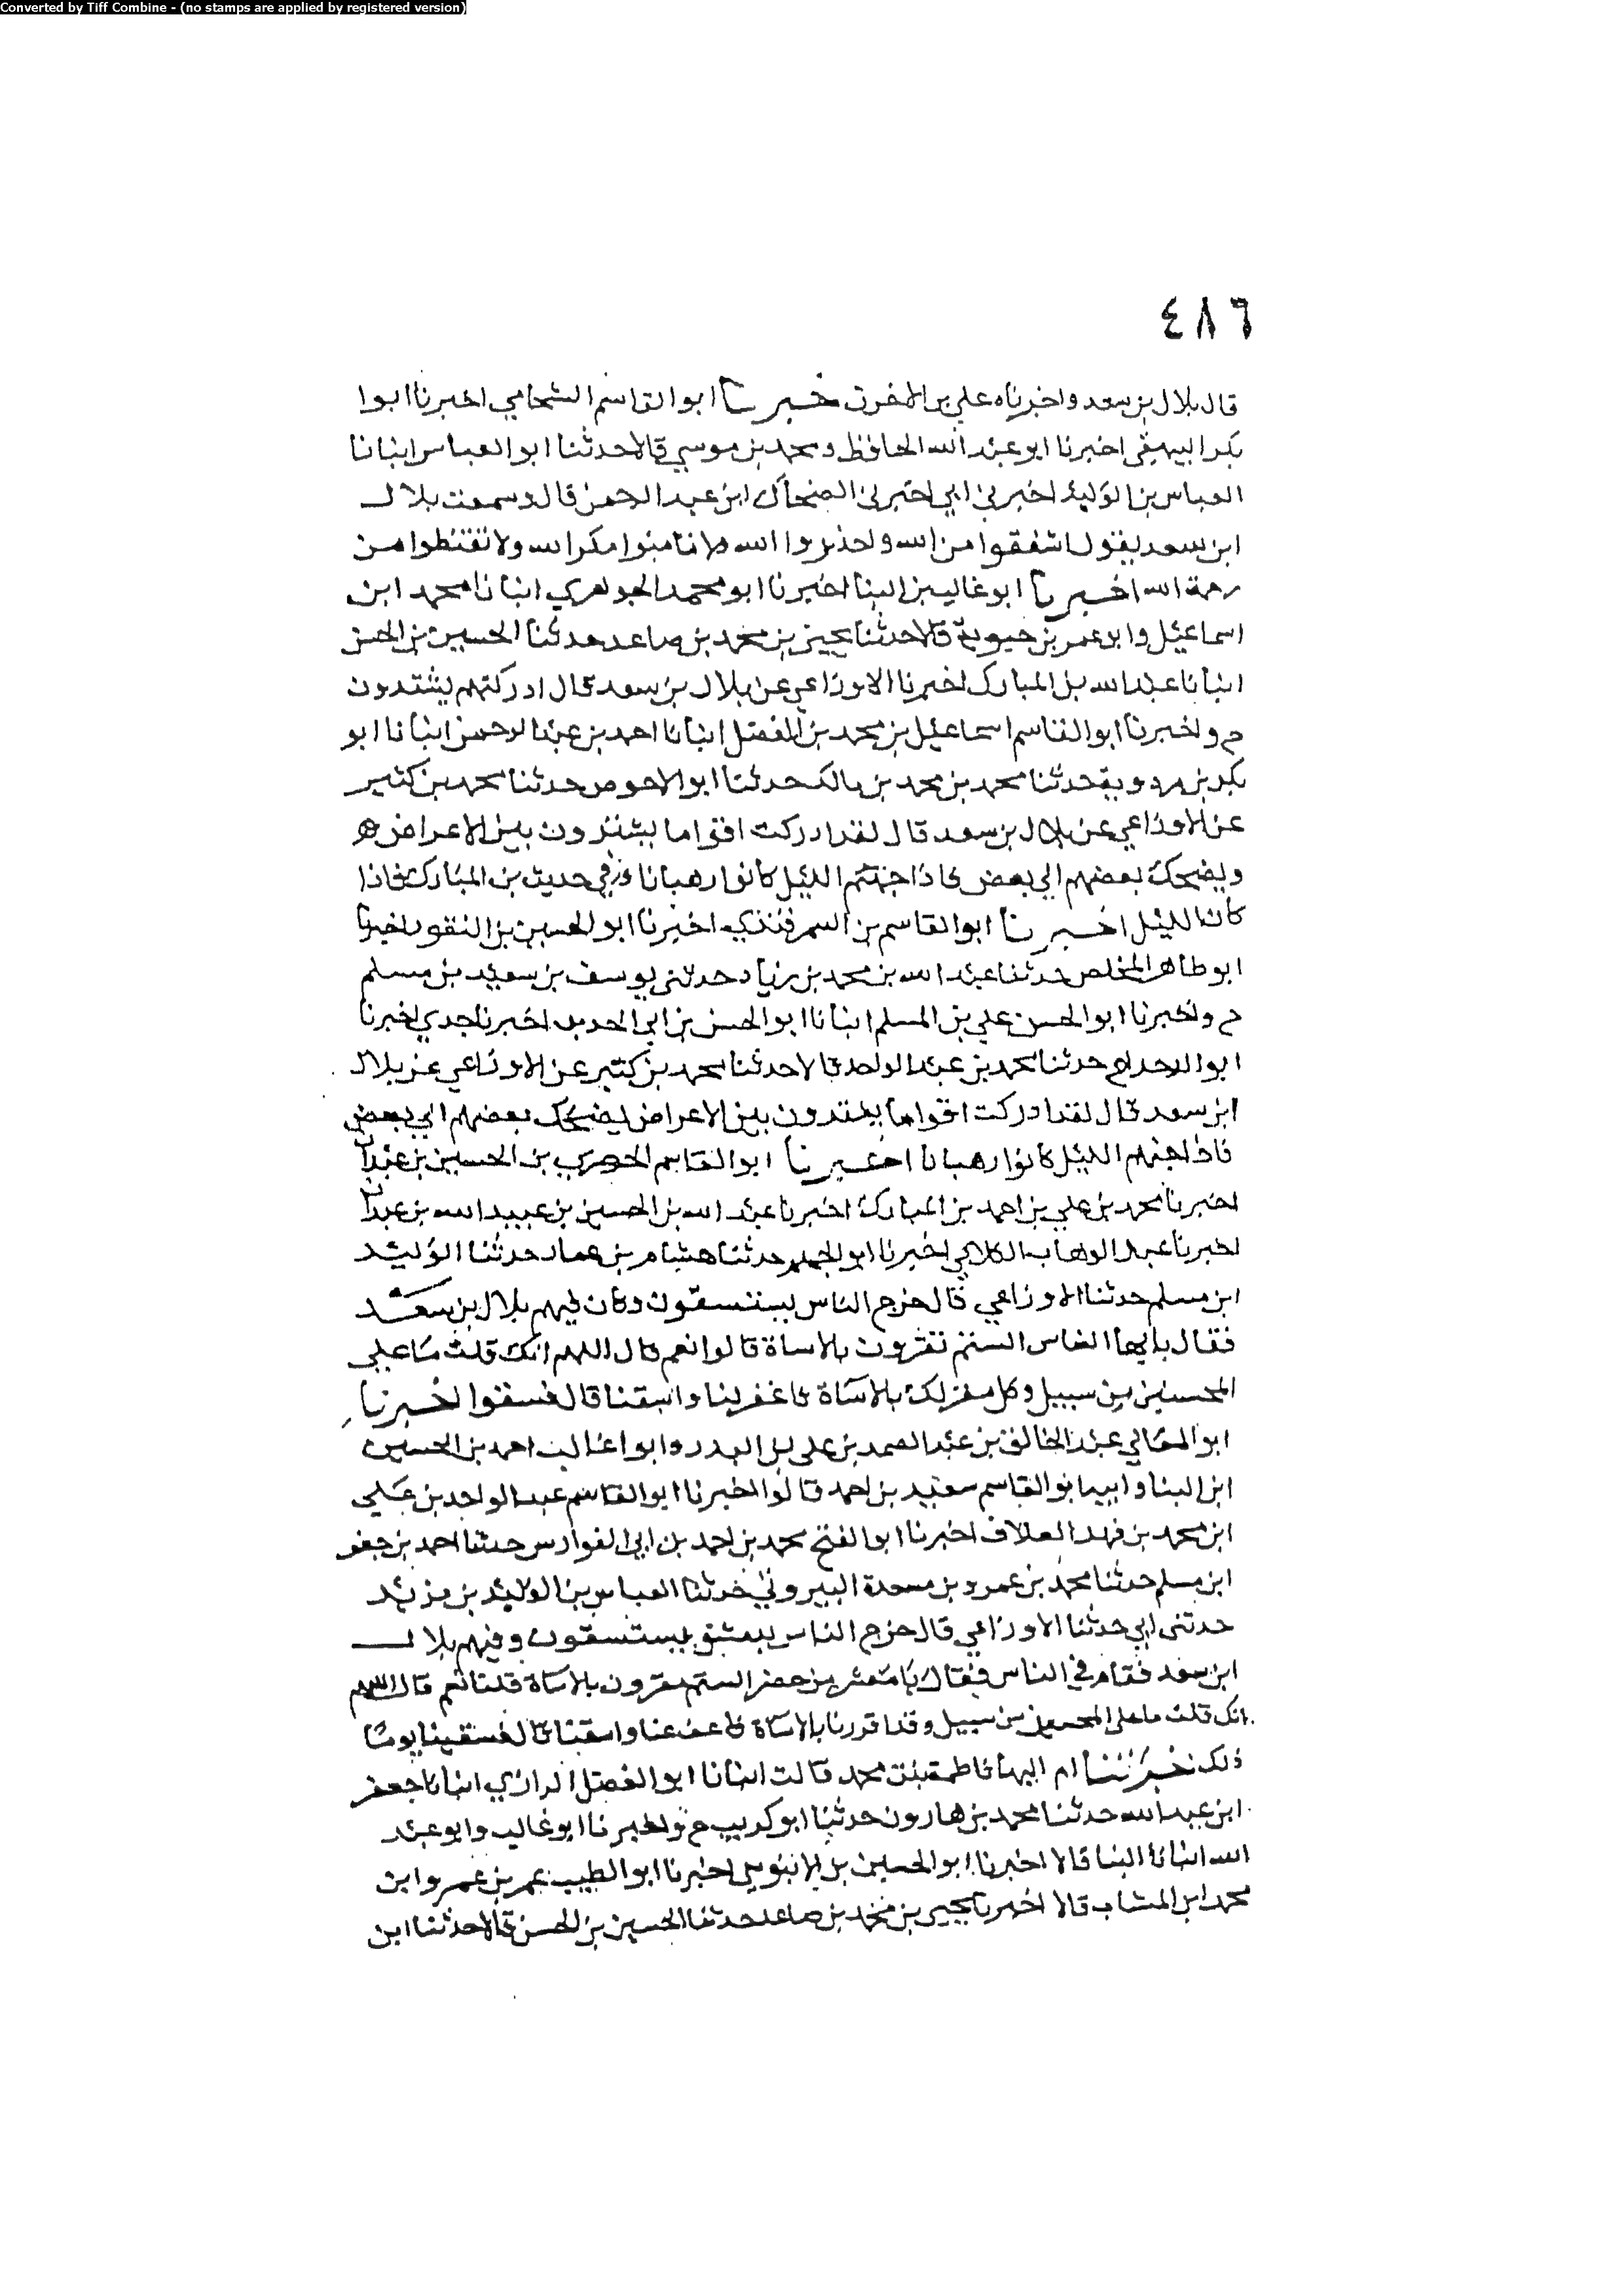 Converted by Tiff Combine - (no stamps are applied by registered version)
٤٨٦
قال بلال بن سعد واخرناه علي بن خبرنا ابوا القاسم الشحامي اخبرنا ابوا
بكر البيهقي اخبرنا ابو عبد الله الحافظ ومحمد بن موسي قالا حدثنا ابوا العباس انبانا
العباس بن الوليد اخبرني ابي اخبرني الضحاك ابن عبد الرحمن قال وسمعت بلال
ابن سعد يقول اشفقوا من الله واحذروا الله ولا تامنوا مكر الله ولا تقنطوا من
رحمة الله اخبرنا ابو غالب بن البنا اخبرنا ابو محمد الجوهري انبانا محمد ابن
اسماعيل وابو عمر بن حيوية قالا حدثنا يحيى بن محمد بن صاعد حدثنا الحسين بن الحسن
انبانا عبد الله بن المبارك اخبرنا الاوزاعي عن بلال بن سعد قال ادركتهم يشتدون
ح واخبرنا ابوا القاسم اسماعيل بن محمد بن الفضل انبانا احمد بن عبد الرحمن انبانا ابو
بكر بن مردويه حدثنا محمد بن محمد بن مالك حدثنا ابوا الاحوص حدثنا محمد بن كثير
عن الاوزاعي عن بلال بن سعد قال لقد ادركت اقواما يشتدون بين الاعراض
ويضحك بعضهم الي بعض فاذا جنهم الليل كانوا رهبانا وفي حديث بن المبارك فاذا
كان الليل اخبرنا ابوا القاسم بن السمرقندي اخبرنا ابو الحسين بن النقور اخبرنا
ابو طاهر المخلص حدثنا عبد الله بن محمد بن زياد حدثني يوسف بن سعيد بن مسلم
ح واخبرنا ابوا الحسن علي بن المسلم انبانا ابوا الحسن بن ابي الحديد اخبرنا جدي اخبرنا
ابوا الدحداح حدثنا محمد بن عبد الواحد قالا حدثنا محمد بن كثير عن الاوزاعي عن بلال
ابن سعد قال لقد ادركت اقواما يشتدون بين الاعراض يضحك بعضهم الي بعض
فاذا جنهم الليل كانوا رهبانا اخبرنا ابوا القاسم الخضري بن الحسين بن عبدان
اخبرنا محمد بن علي بن احمد بن المبارك اخبرنا عبد الله بن الحسين بن عبيد الله بن عبدان
اخبرنا عبد الوهاب الكلابي اخبرنا ابو الجهم حدثنا هشام بن عمار حدثنا الوليد
ابن مسلم حدثنا الاوزاعي قال خرج الناس يستسقون وكان فيهم بلال بن سعد
فقال يا ايها الناس الستم تقرون بالاساة قالوا نعم قال اللهم انك قلت ما علي
المحسنين من سبيل وكل مقر لك بالاساة فاغفر لنا واسقنا قال فسقوا اخبرنا
ابوا المعالي عبد الخالق بن عبد الصمد بن علي بن البدر وابوا غالب احمد بن الحسين
ابن البنا وابوا القاسم سعيد بن احمد قالوا اخبرنا ابوا القاسم عبد الواحد بن علي
ابن محمد بن فهد العلاف اخبرنا ابوا الفتح محمد بن احمد بن ابي الفوارس حدثنا احمد بن جعفر
ابن مسلم حدثنا محمد بن عمرو بن مسعدة البيروتي حدثنا العباس بن الوليد بن مزيد
حدثني ابي حدثنا الاوزاعي قال خرج الناس بدمشق يستسقون وفيهم بلال
ابن سعد فقام في الناس فقال يا معشر من حضر الستم مقرون بالاساة قلنا نعم قال اللهم
انك قلت ما على المحسنين من سبيل وقد اقررنا بالاساة فاعف عنا واسقنا قال فسقينا يومنا
ذلك خبرتنا ام البها فاطمة بنت محمد قالت انبانا ابوا الفضل الرازي انبانا جعفر
ابن عبد الله حدثنا محمد بن هارون حدثنا ابو كريب ح واخبرنا ابو غالب وابو عبد
الله انبانا البنا قالا اخبرنا ابوا الحسين بن الابنوسي اخبرنا ابوا الطيب عمر بن عمرو ابن
محمد ابن المنتاب قالا اخبرنا يحيى بن محمد بن صاعد حدثنا الحسين بن الحسن قالا حدثنا ابن